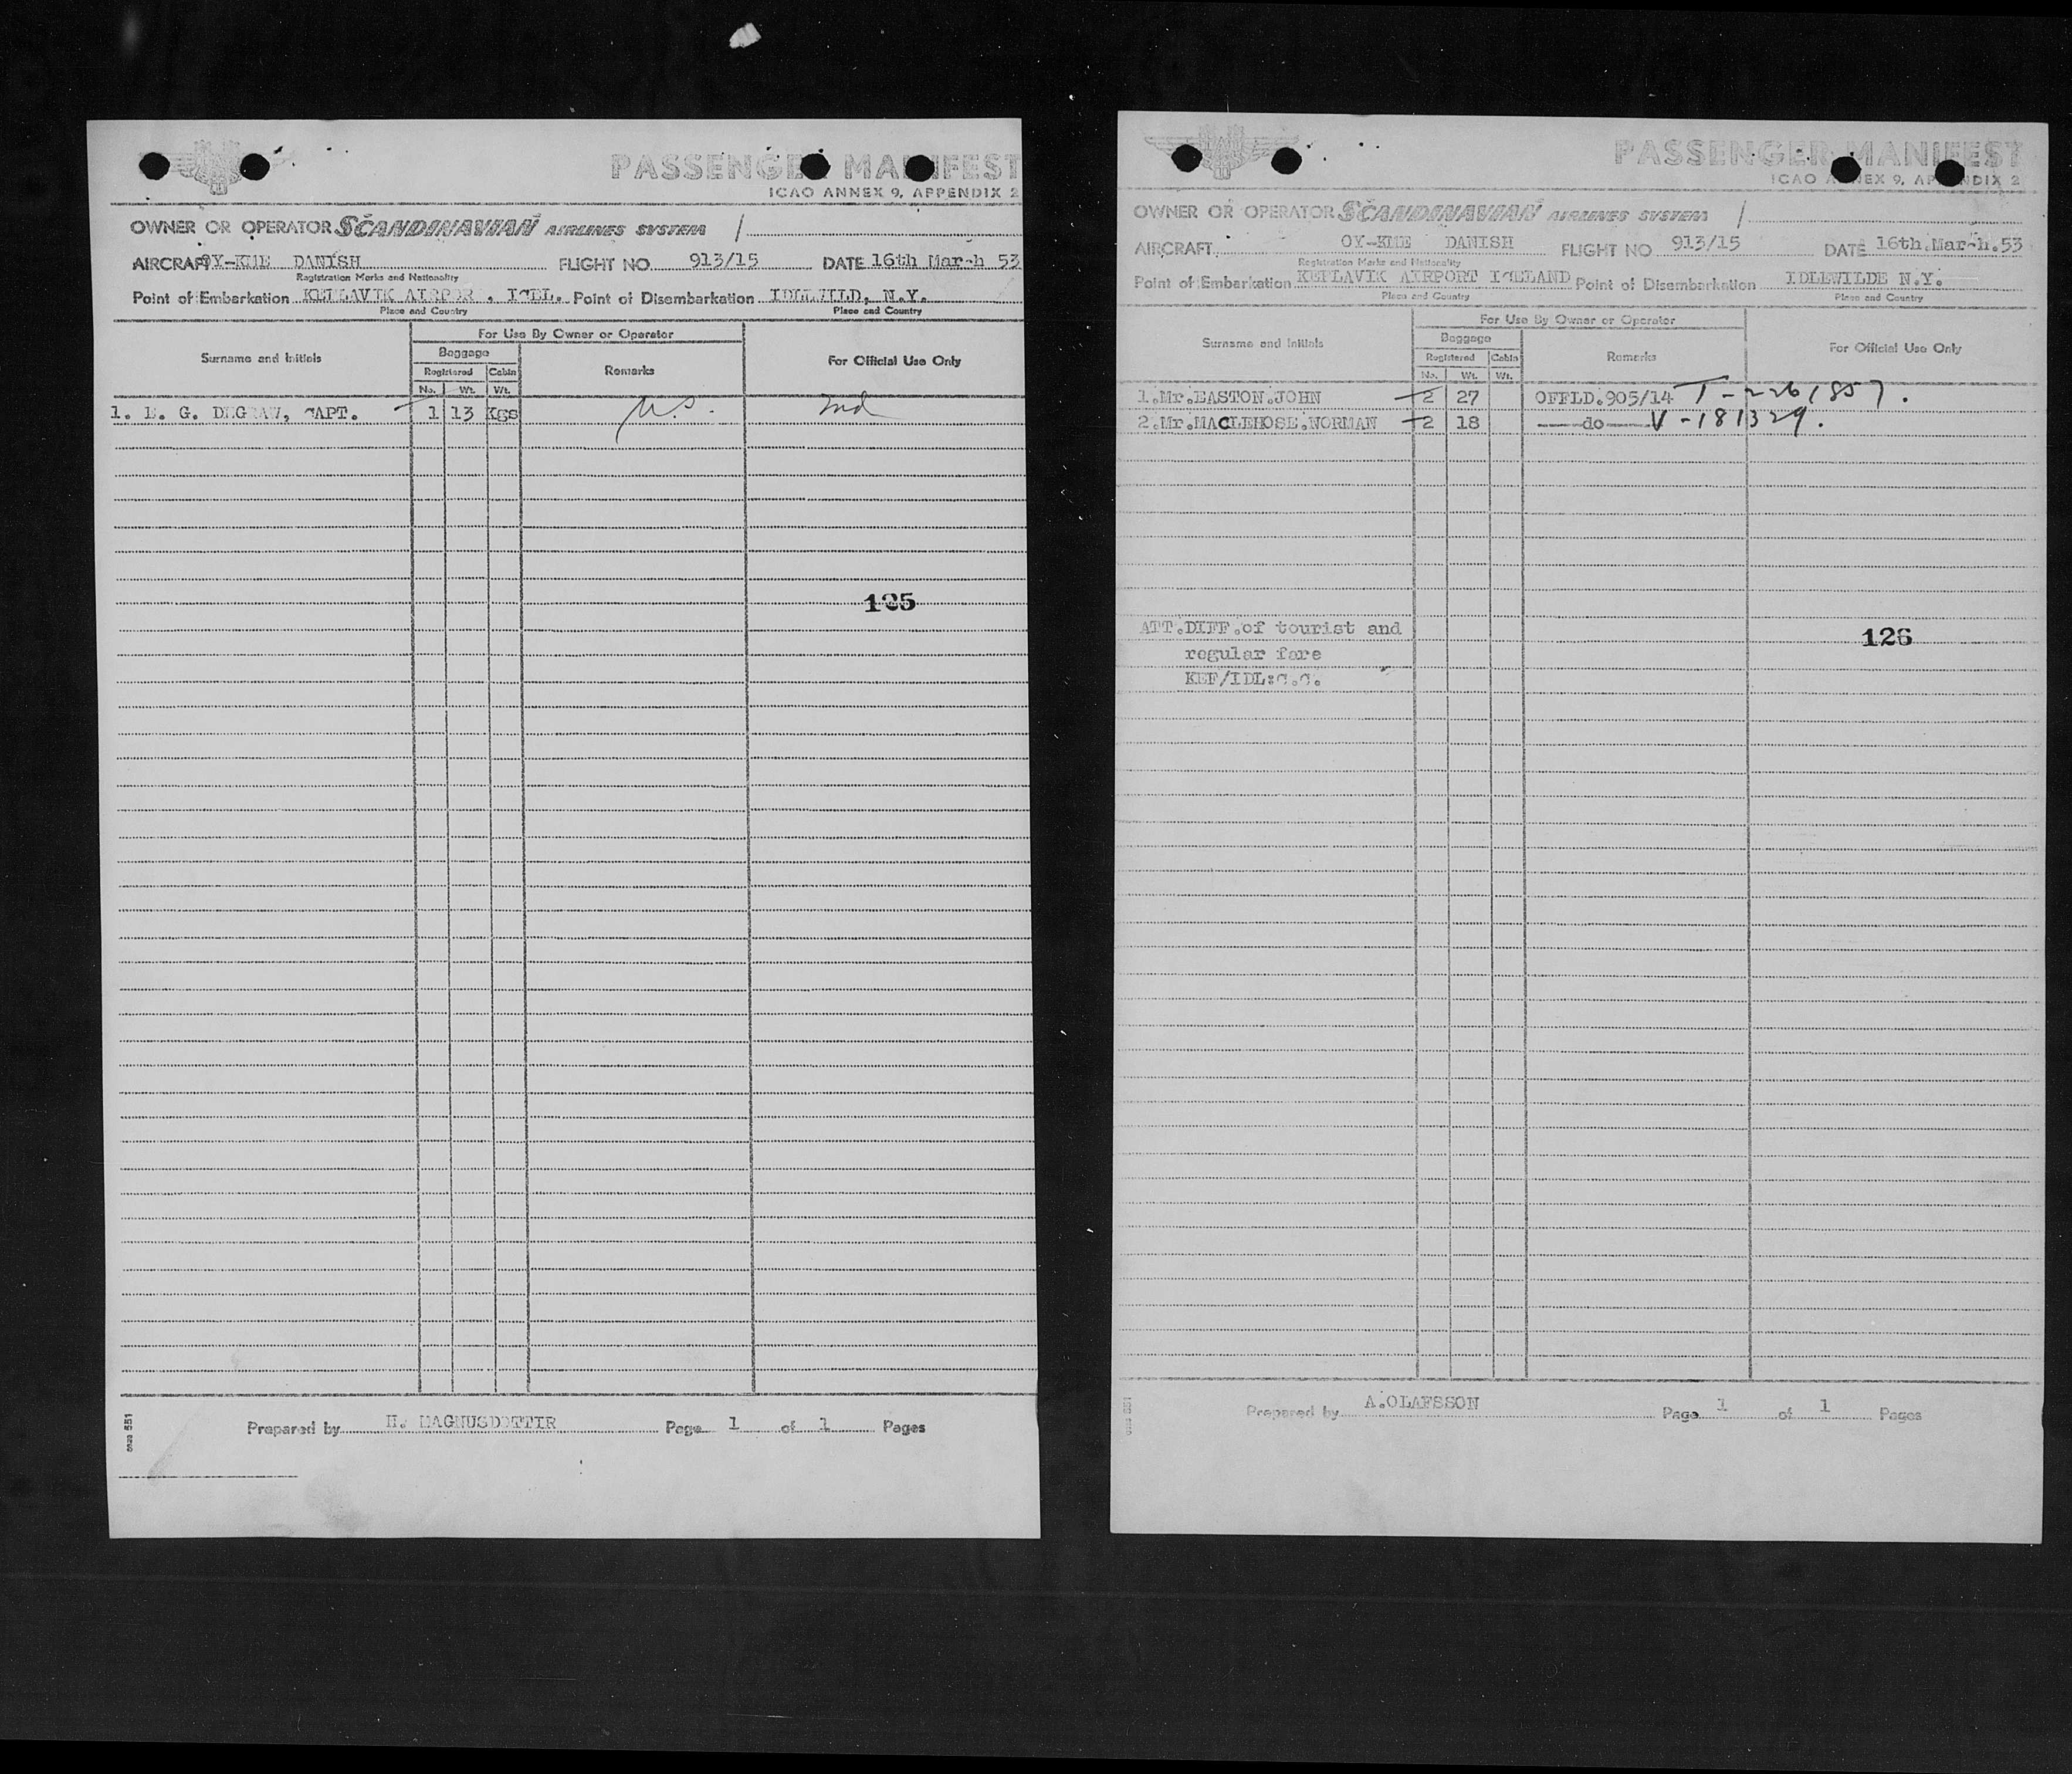 PASSENGER MANIFEST
ICAO ANNEX 9, APPENDIX 2
OWNER OR OPERATOR SCANDINAVIAN AIRLINES SYSTEM /
AIRCRAFT OY-KME DANISH FLIGHT NO 913/15 DATE 16th March 53
Registration Marks and Nationality
Point of Embarkation KEFLAVIK AIRPOR , ICEL. Point of Disembarkation IDLEWILD, N.Y.
Place and Country Place and Country
For Use By Owner or Operator
Surname and Initials Baggage Remarks For Official Use Only
Registered Cabin
No. Wt. Wt.
1. E. G. DEGRAW, CAPT. 1 13 Kgs U.S. Ind
125
Prepared by H. MAGNUSDOTTIR Page 1 of 1 Pages
PASSENGER MANIFEST
ICAO ANNEX 9, APPENDIX 2
OWNER OR OPERATOR SCANDINAVIAN AIRLINES SYSTEM /
AIRCRAFT OY-KME DANISH FLIGHT NO 913/15 DATE 16th.March.53
Registration Marks and Nationality
Point of Embarkation KEFLAVIK AIRPORT ICELAND Point of Disembarkation IDLEWILDE N.Y.
Place and Country Place and Country
For Use By Owner or Operator
Surname and Initials Baggage Remarks For Official Use Only
Registered Cabin
No. Wt. Wt.
1.Mr.EASTON.JOHN 2 27 OFFLD.905/14 T-2261857.
2.Mr.MACLEHOSE.NORMAN 2 18 ----do---- V-181329.
ATT.DIFF.of tourist and
regular fare
KEF/IDL:C.C.
126
Prepared by A.OLAFSSON Page 1 of 1 Pages